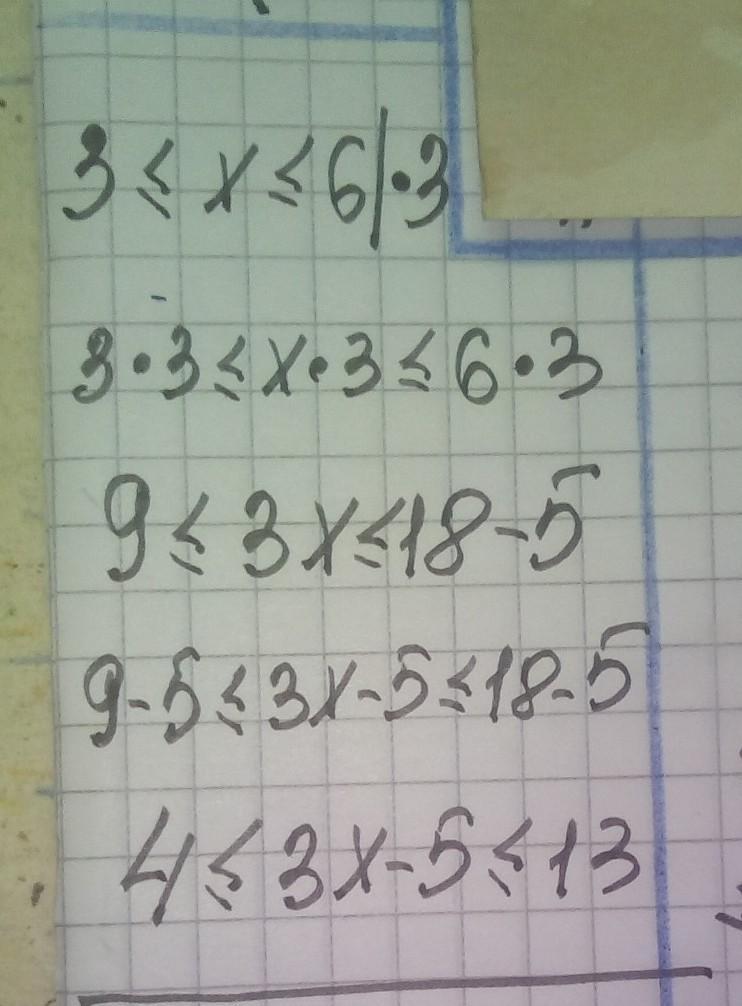 3 ≤ x ≤ 6 | · 3
3 · 3 ≤ x · 3 ≤ 6 · 3
9 ≤ 3x ≤ 18 - 5
9 - 5 ≤ 3x - 5 ≤ 18 - 5
4 ≤ 3x - 5 ≤ 13